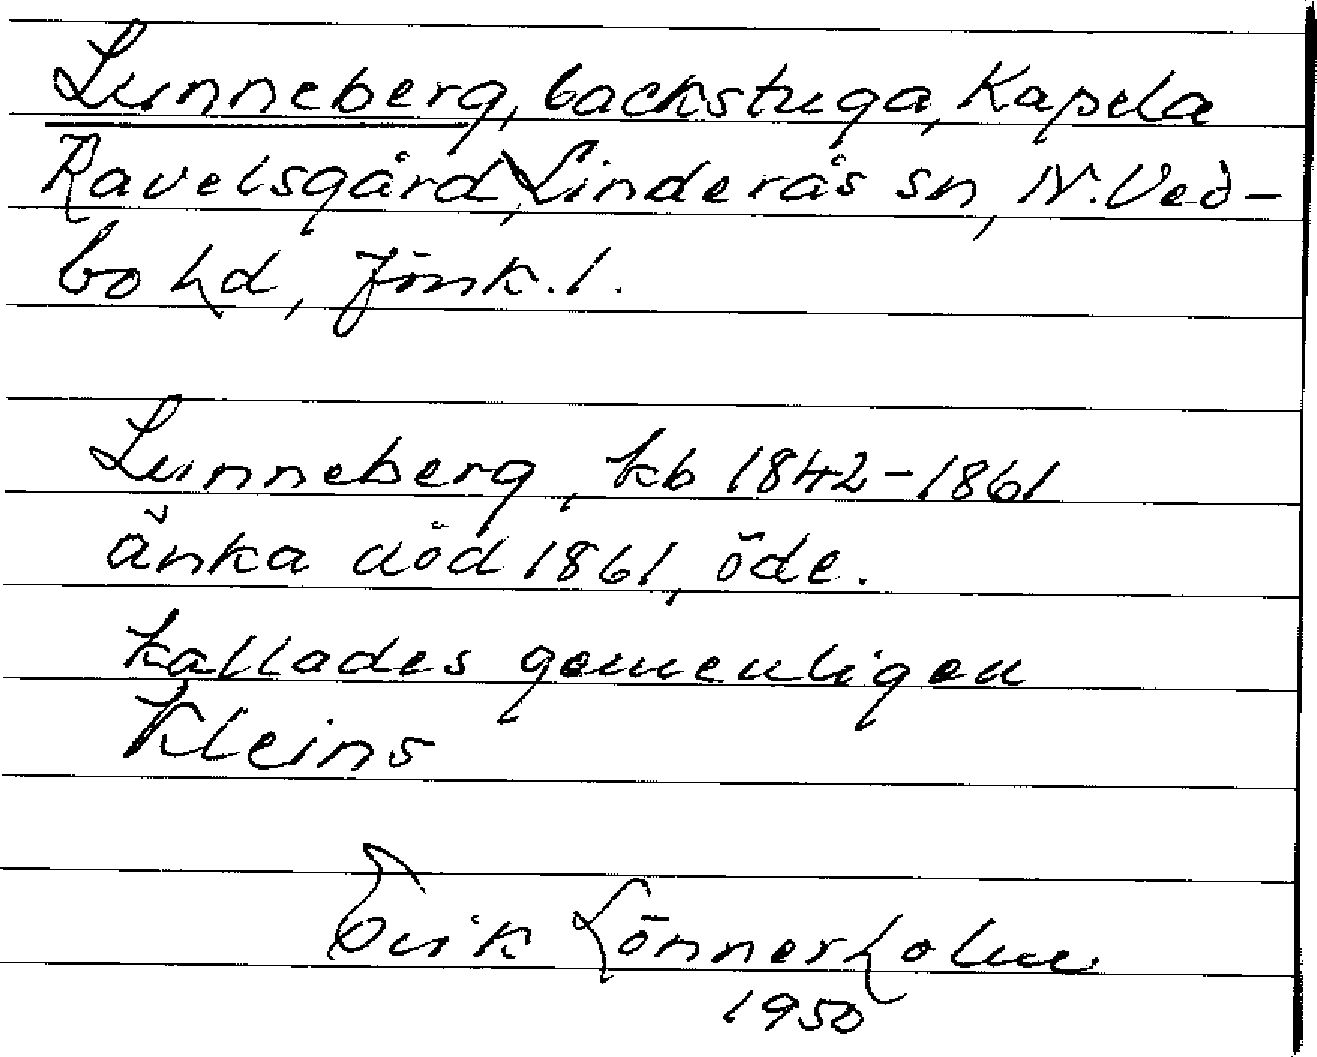 Lunneberg, backstuga, Kapela
Ravelsgård, Linderås sn, N. Ved-
bo hd, Jönk. l.
Lunneberg, kb 1842-1861
änka död 1861, öde.
kallades gemenligen
Kleins
Erik Lönnerholm
1950